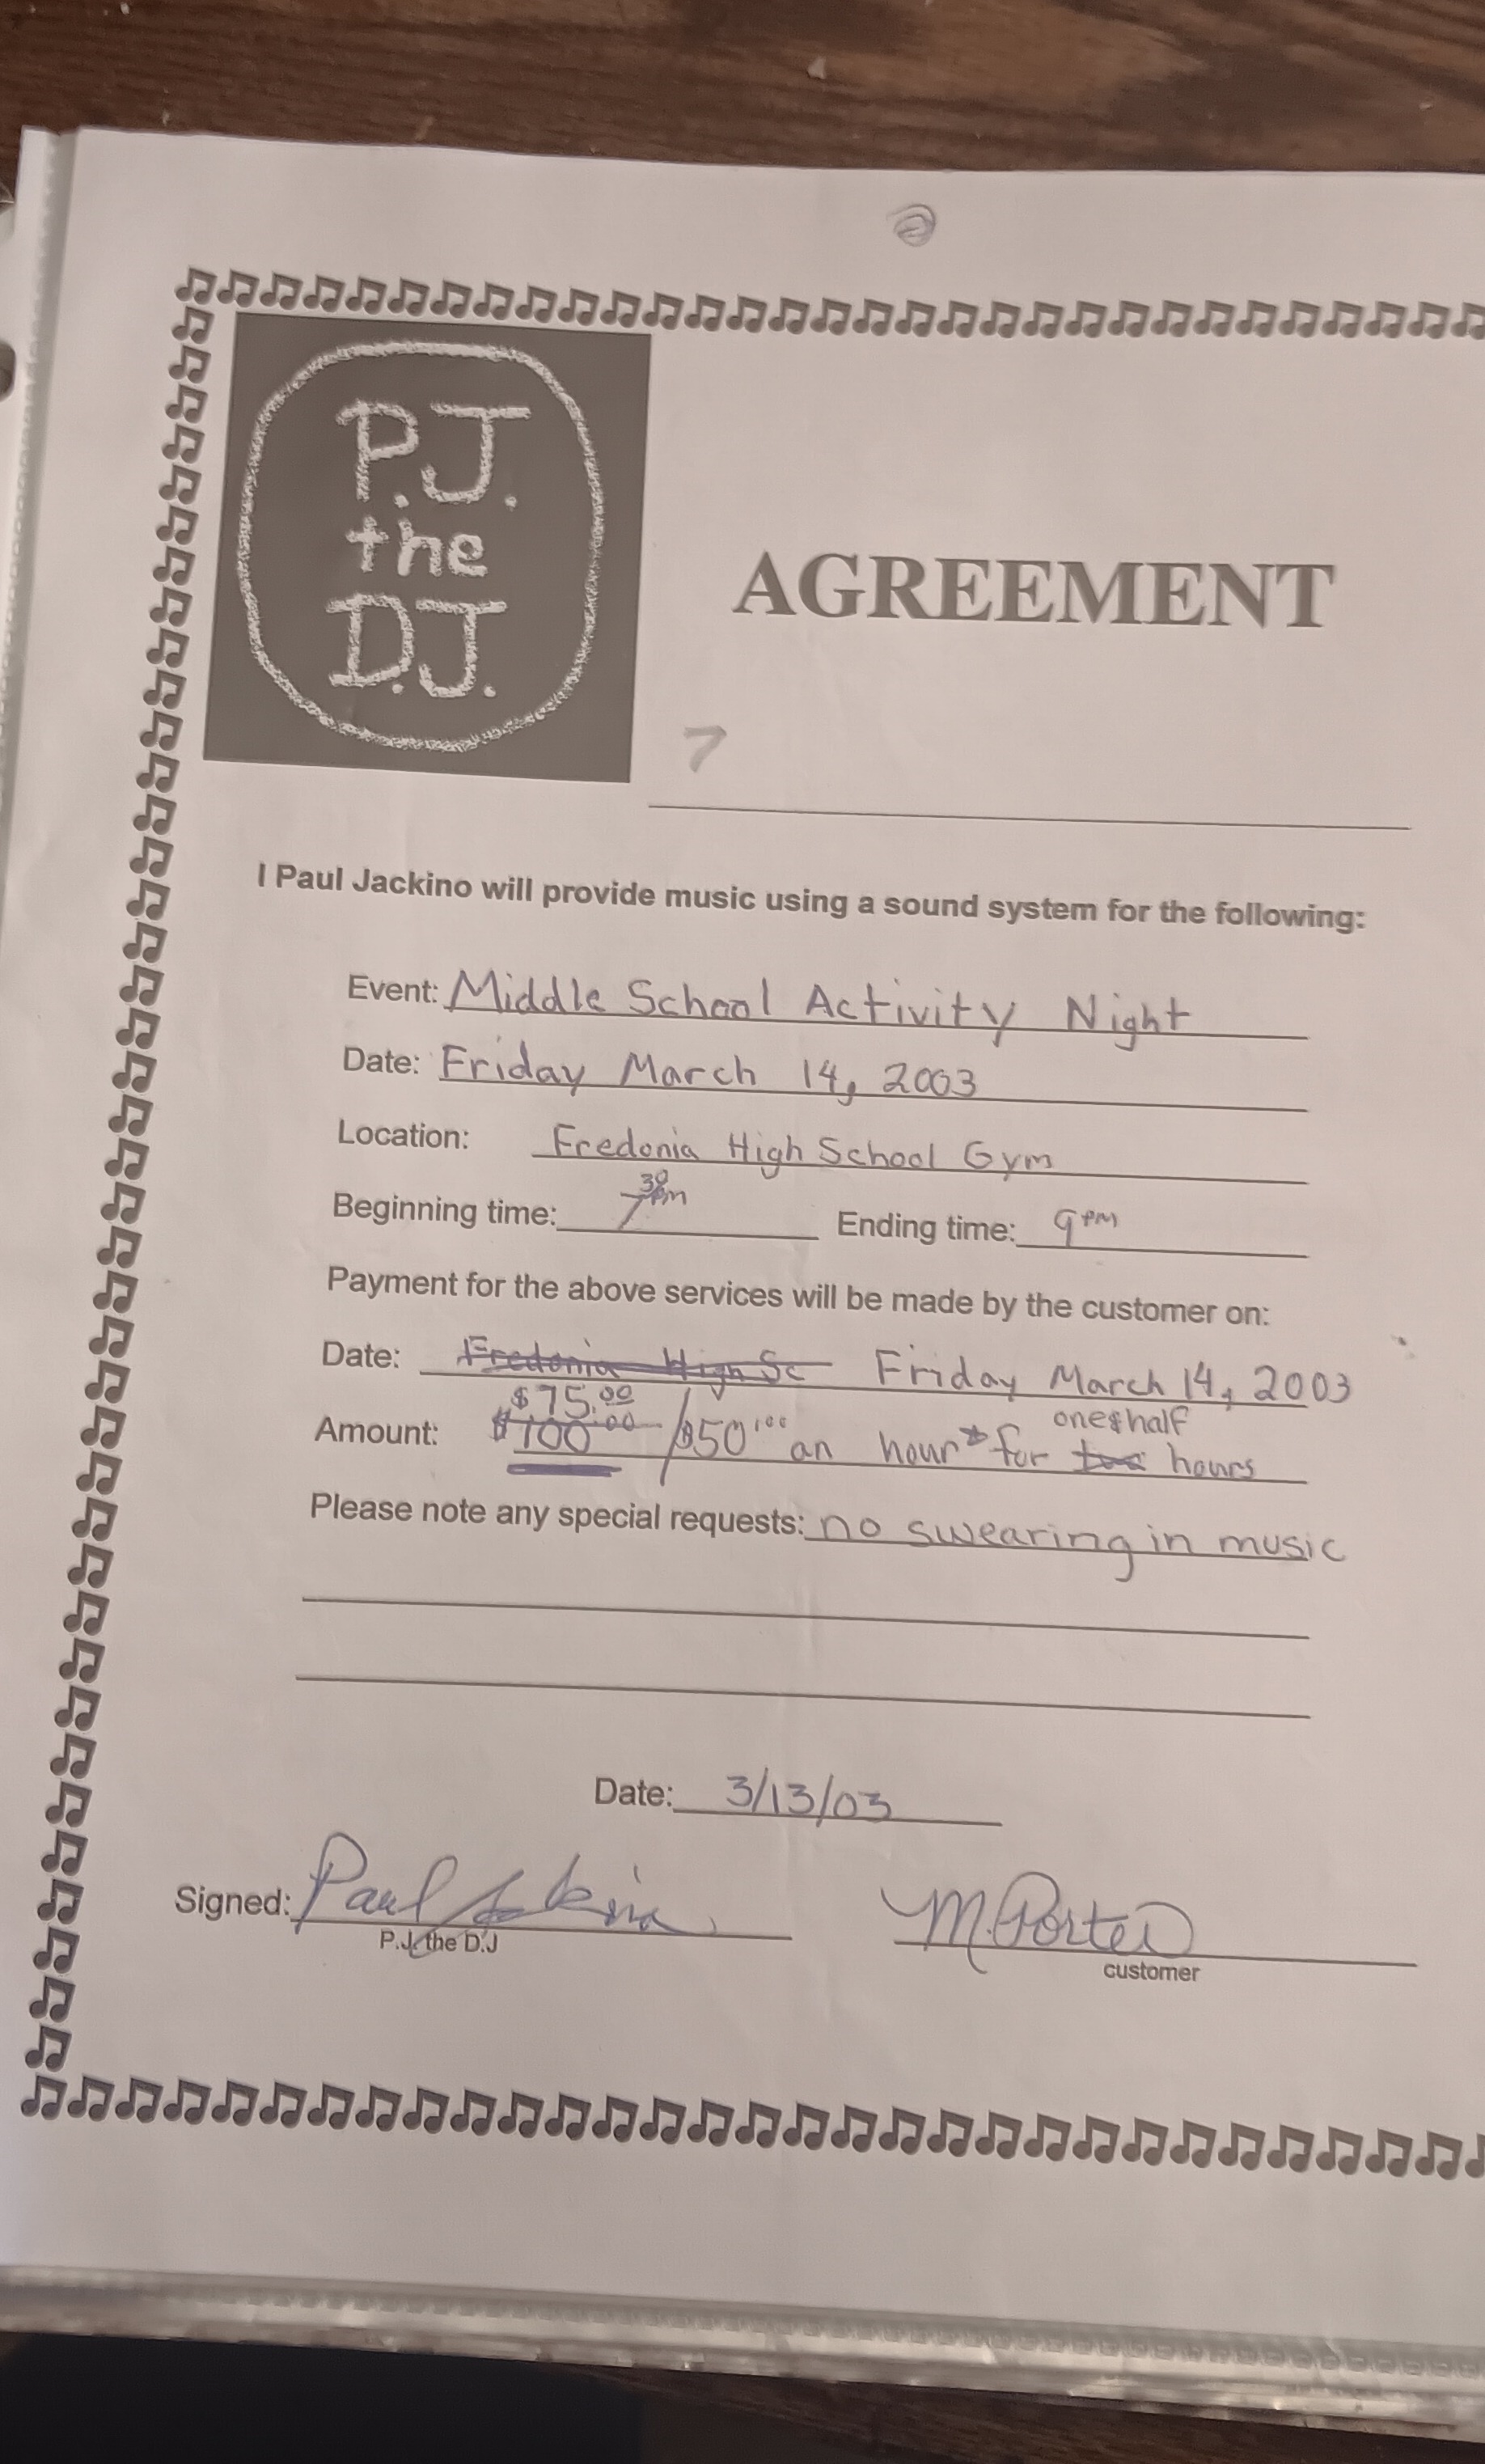 P.J.
the
D.J.
AGREEMENT
7
I Paul Jackino will provide music using a sound system for the following:
Event: Middle School Activity Night
Date: Friday March 14, 2003
Location: Fredonia High School Gym
Beginning time: 7 30 pm Ending time: 9 pm
Payment for the above services will be made by the customer on:
Date: Fredonia High Sc Friday March 14, 2003
$75.00 one & half
Amount: $100.00 / $50.00 an hour for two hours
Please note any special requests: no swearing in music
Date: 3/13/03
Signed: Paul Jackino M. Porter
P.J. the D.J customer